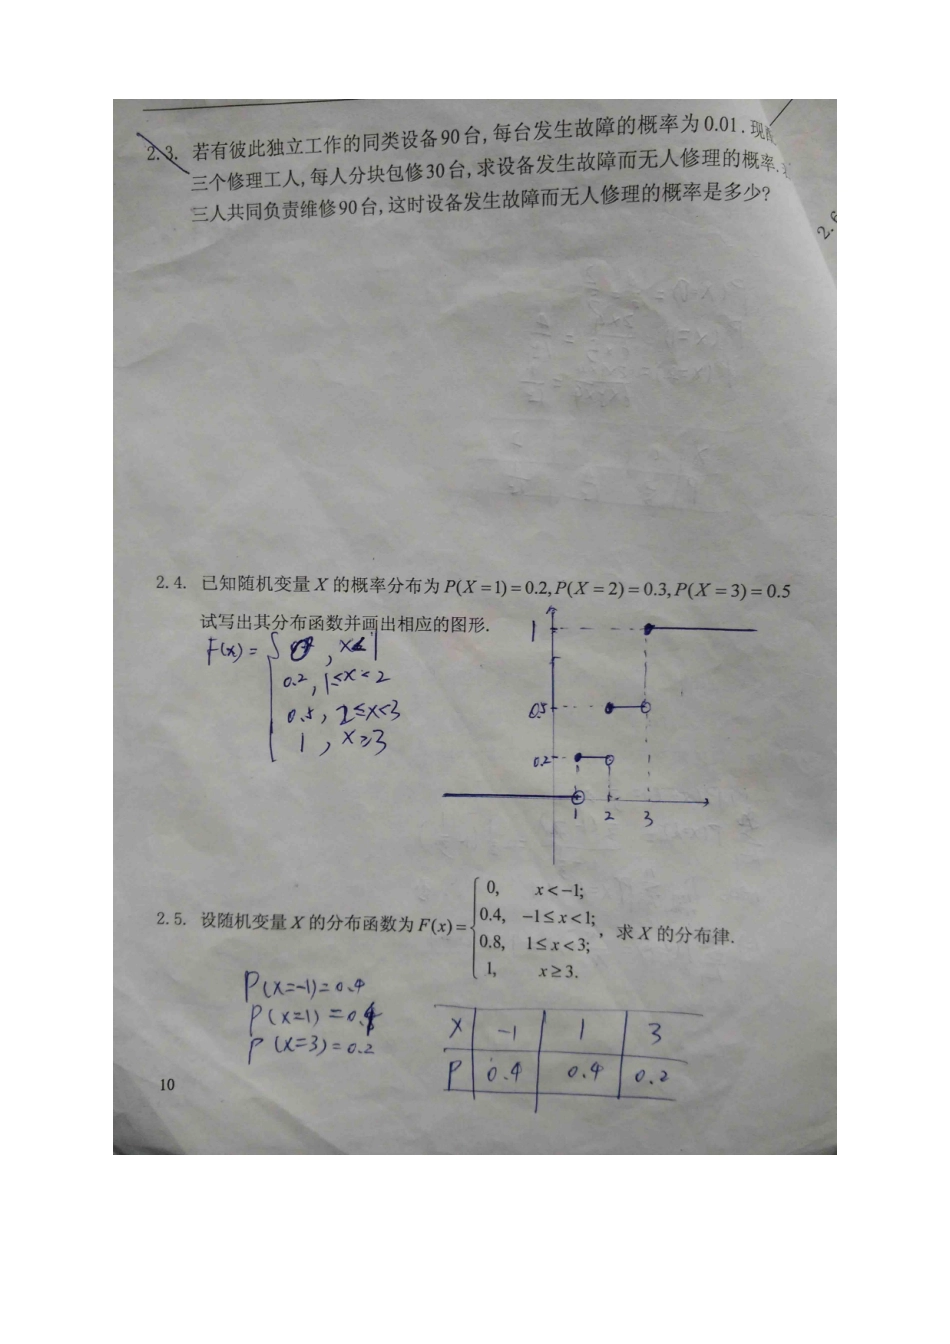 2.3. 若有彼此独立工作的同类设备90台,每台发生故障的概率为0.01.现
三个修理工人,每人分块包修30台,求设备发生故障而无人修理的概率.
三人共同负责维修90台,这时设备发生故障而无人修理的概率是多少?
2.6
2.4. 已知随机变量 X 的概率分布为 P(X=1)=0.2,P(X=2)=0.3,P(X=3)=0.5
试写出其分布函数并画出相应的图形.
F(x)= { 0, x<1
0.2, 1≤x<2
0.5, 2≤x<3
1, x≥3
1
0.5
0.2
1 2 3
2.5. 设随机变量 X 的分布函数为 F(x)= { 0, x<-1;
0.4, -1≤x<1;
0.8, 1≤x<3;
1, x≥3.
, 求 X 的分布律.
P(x=-1)=0.4
P(x=1)=0.4
P(x=3)=0.2
X -1 1 3
P 0.4 0.4 0.2
10